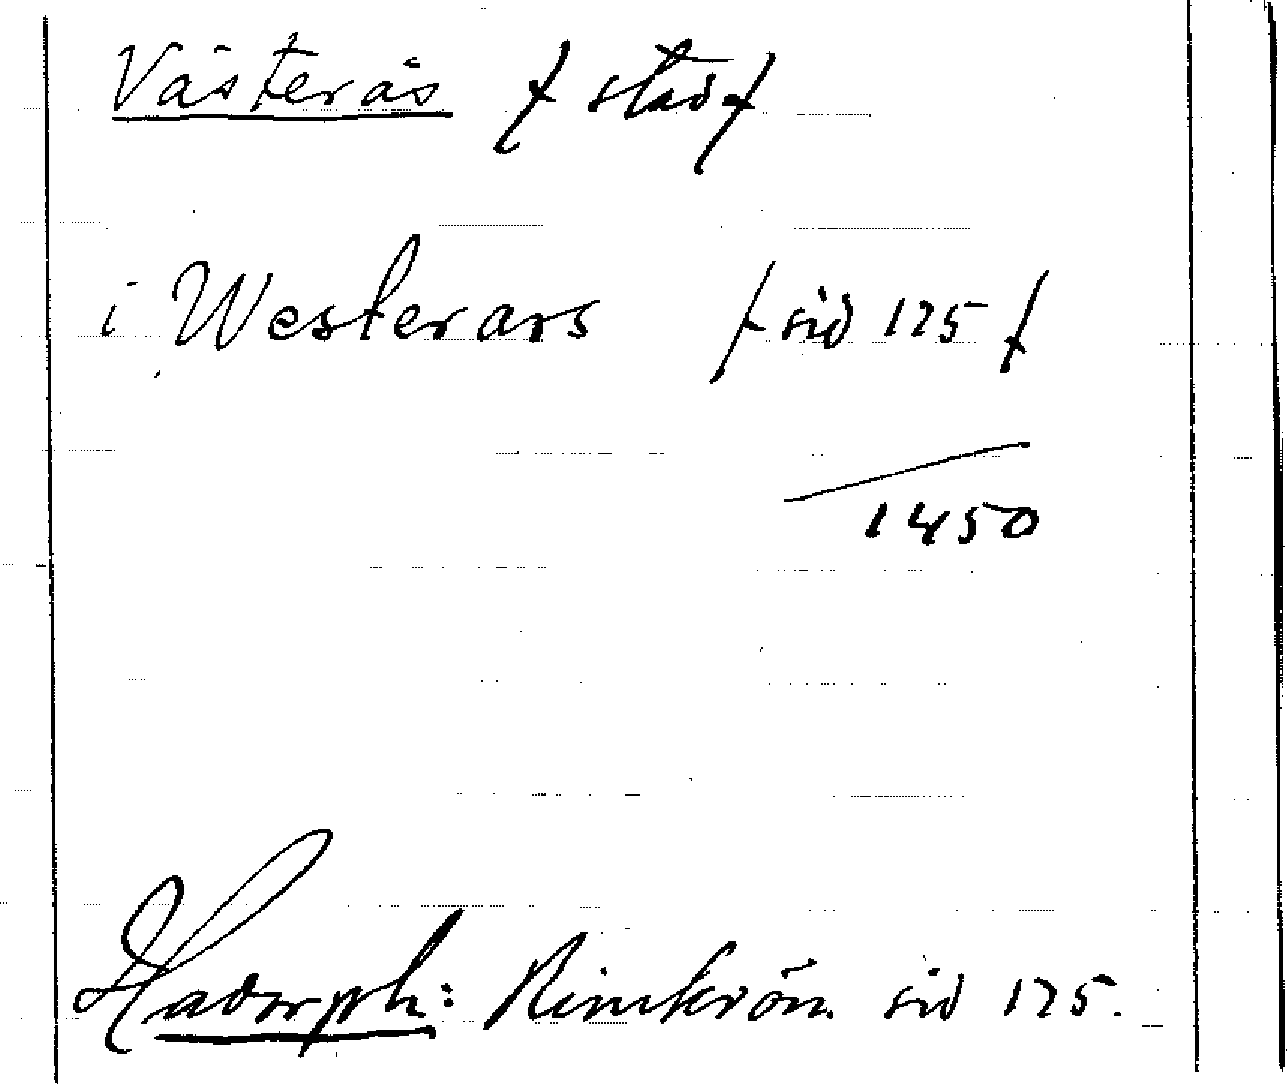 Västerås / stad /
i Westerars / sid 125 /
1450
Hadorph: Rimkrön. sid 125.